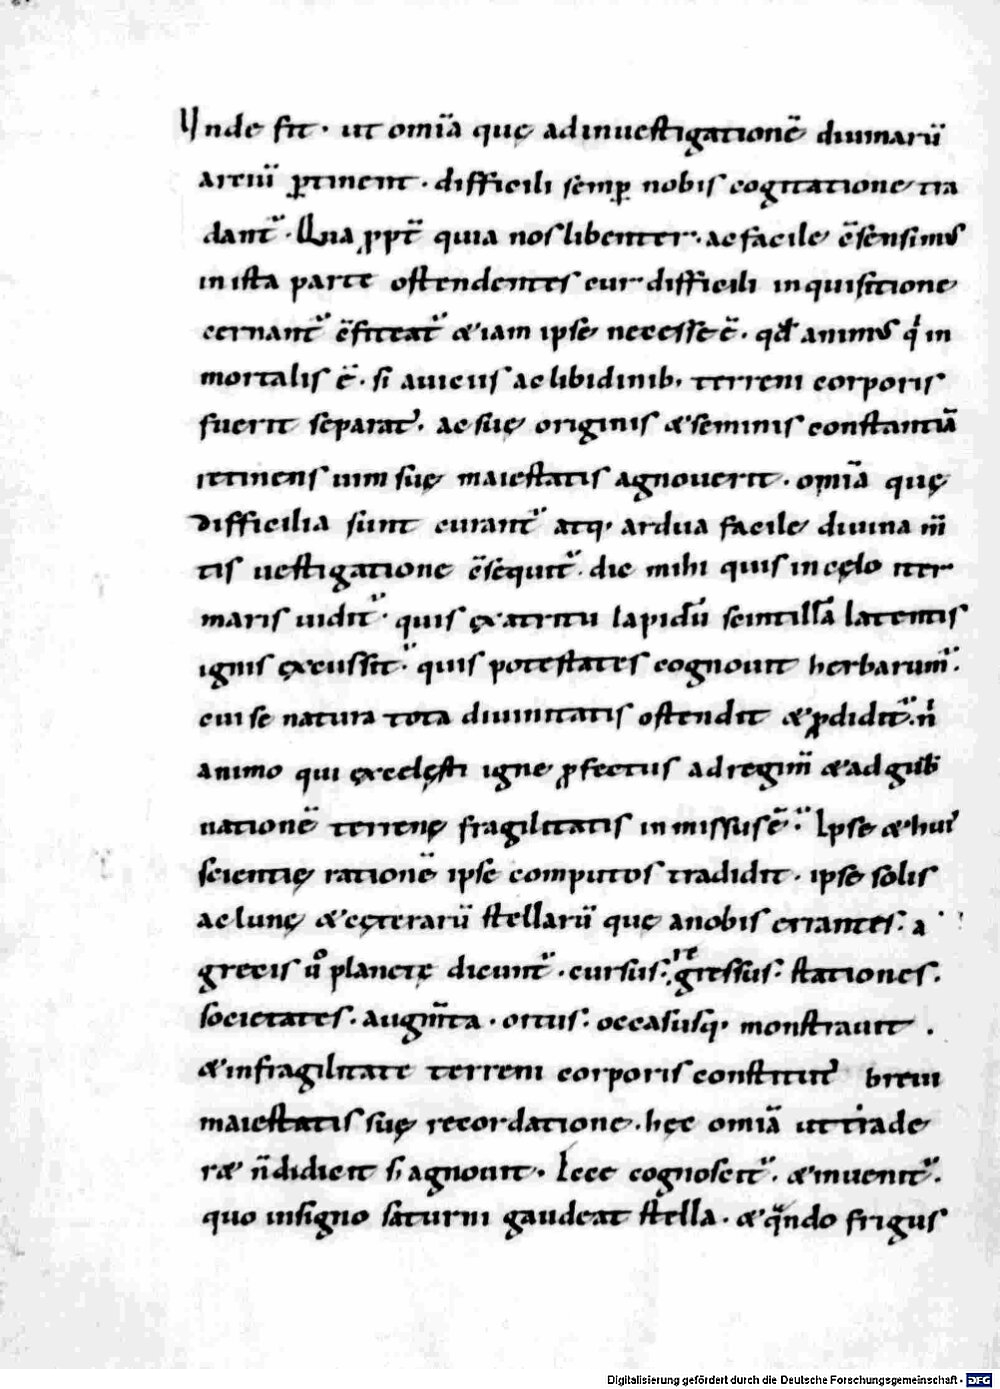 Unde fit · ut om̅ia quę ad inuestigatione̅ diuinaru̅
artiu̅ ꝑtinent · difficili semꝑ nobis cogitatione tra
dant᷑ · Qua ꝓpt̅ quia nos libenter · ac facile e̅ sensimus
in ista parte ostendentes cur difficili inquisitione
cernant᷑ e̅ficeat᷑ & iam ipse necesse e̅ · qđ animus q̇ in
mortalis e̅ · si a uiciis ac libidinib, terreni corporis
fuerit separat᷒ · ac suę originis & seminis constantia̅
retinens uim suę maiestatis agnouerit · om̅ia quę
difficilia sunt curant᷑ atq· ardua facile diuina m̅
tis uestigatione e̅sequit᷑ · dic mihi quis in cęlo iter
maris uidit᷑ · quis ęx attritu lapidu̅ scintilla̅ latentis
ignis ęxcussit᷑ · quis potestates cognouit herbarum᷑ ·
cui se natura tota diuinitatis ostendit & ꝓdidit᷑ · n̊
animo qui ęx cęlęsti igne ꝓfectus ad regim̅ & ad gub̅
natione̅ terrenę fragilitatis inmissus e̅ · Ipse & hui᷒
scientię ratione̅ ipse computos tradidit · ipse solis
ac lunę & cęteraru̅ stellaru̅ quę a nobis errantes · a
grecis ů planetę dicunt᷑ · cursus · regressus · stationes ·
societates · augm̅ta · ortus · occasusq· monstrauit ·
& in fragilitate terreni corporis constitut᷒ breui
maiestatis suę recordatione · hęc om̅ia ut trade
r& n̅ didicit s; agnouit · Ecce cognoscit᷑ · & inuenit᷑ ·
quo in signo saturni gaudeat stella · & qa̅ndo frigus
Digitalisierung gefördert durch die Deutsche Forschungsgemeinschaft - DFG